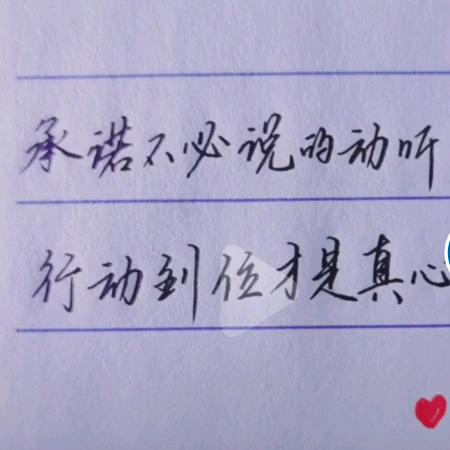 承诺不必说的动听
行动到位才是真心